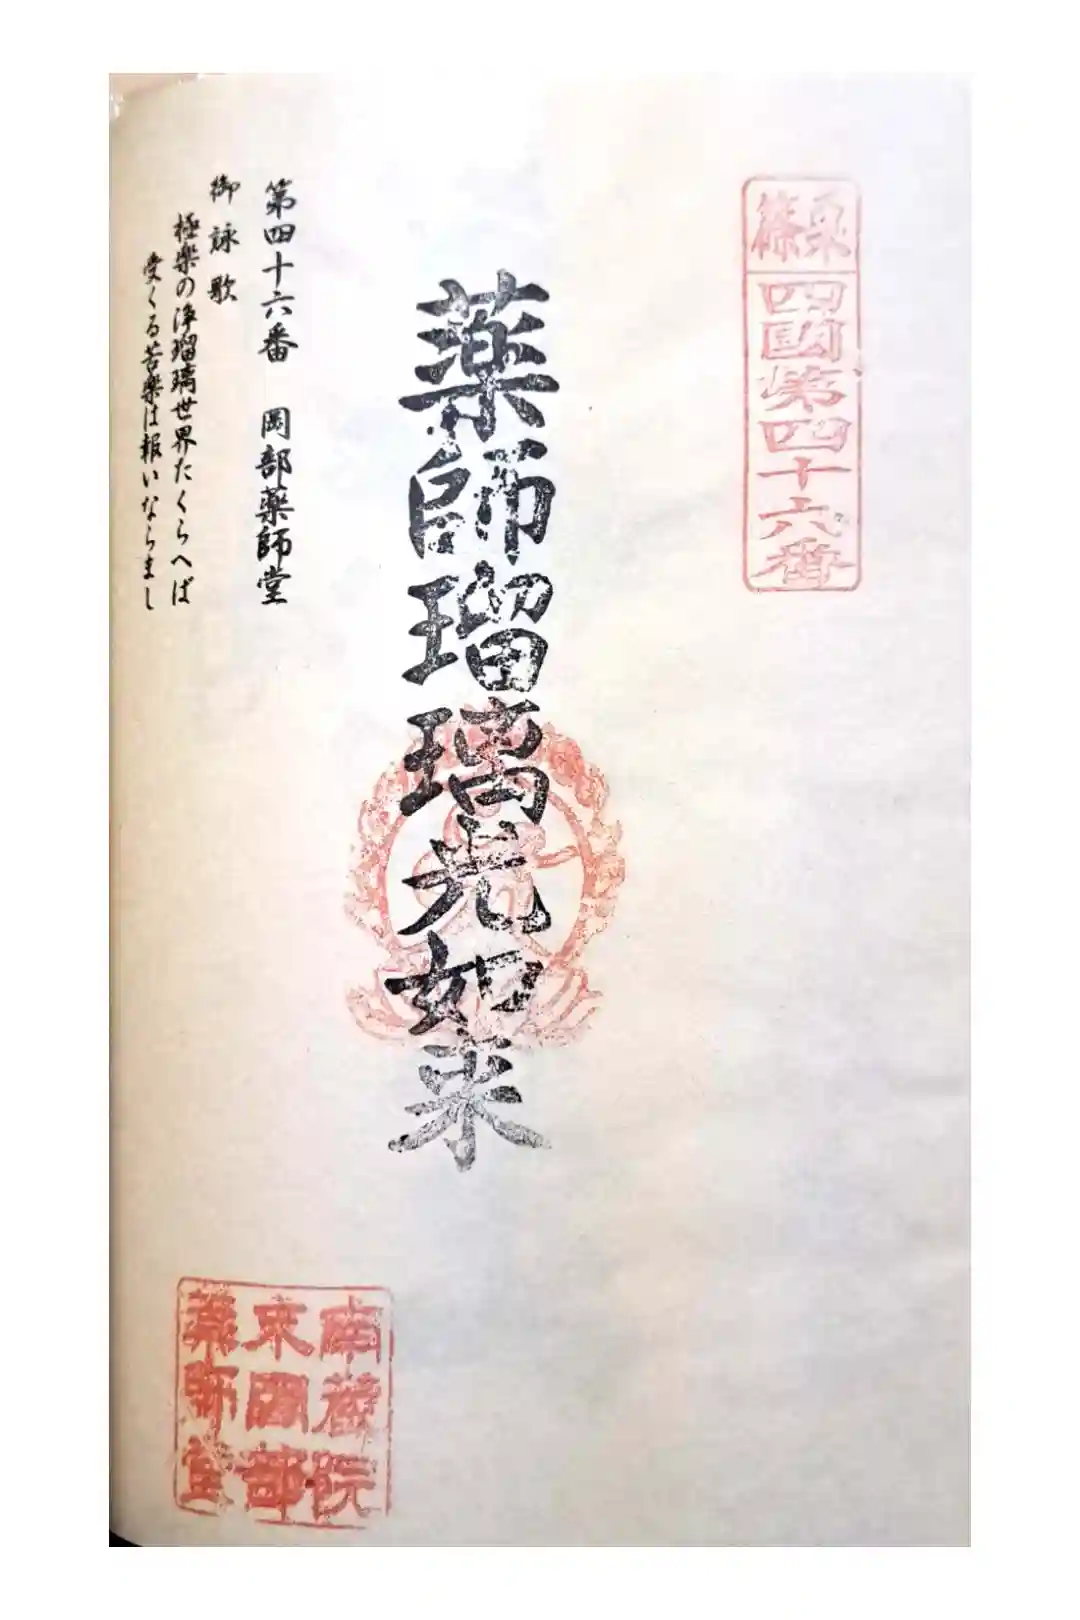 篠栗
四國第四十六番
薬師瑠璃光如来
第四十六番　岡部薬師堂
御詠歌
極楽の浄瑠璃世界たくらへば
受くる苦楽は報いならまし
南蔵院
末岡部
薬師堂